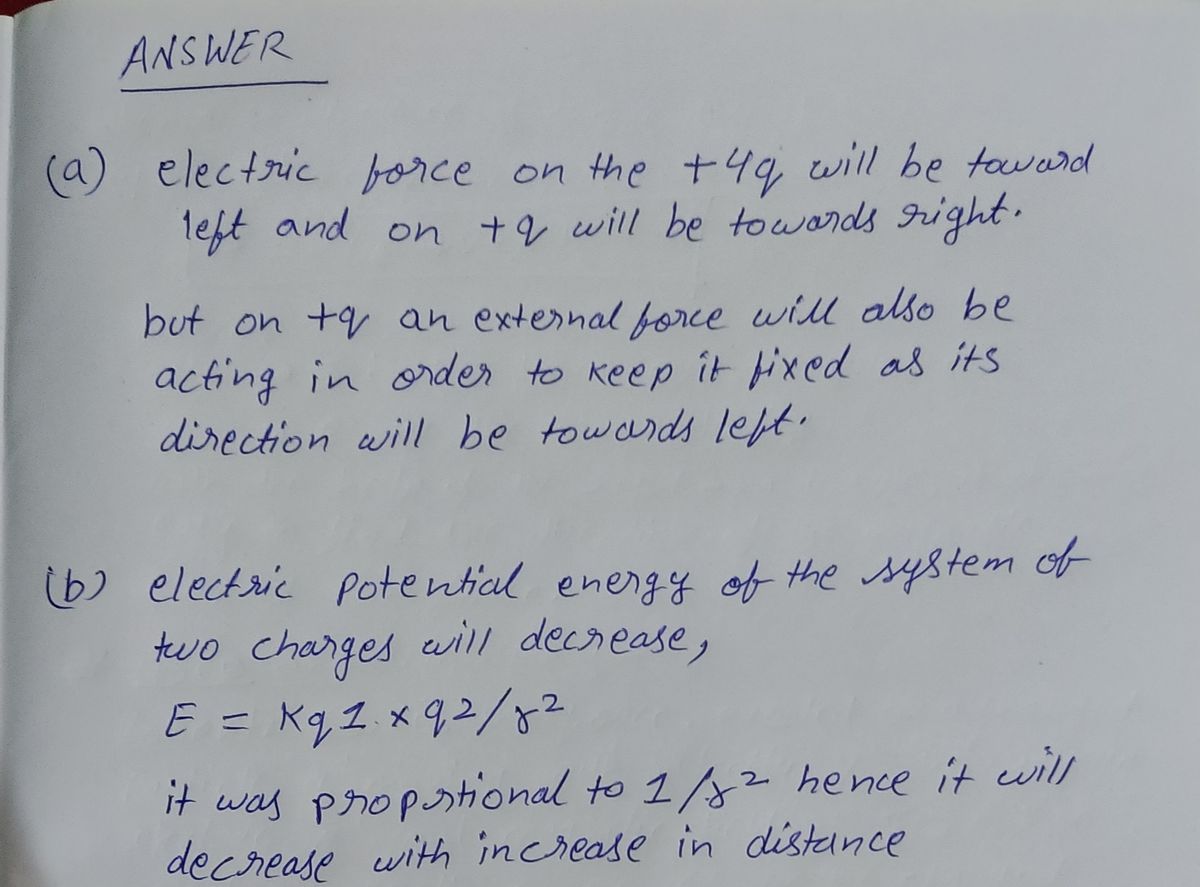 ANSWER
(a) electric force on the +4q will be toward
left and on +q will be towards right.
but on +q an external force will also be
acting in order to keep it fixed as its
direction will be towards left.
(b) electric potential energy of the system of
two charges will decrease,
E = Kq1 x q2/r2
it was proportional to 1/r2 hence it will
decrease with increase in distance